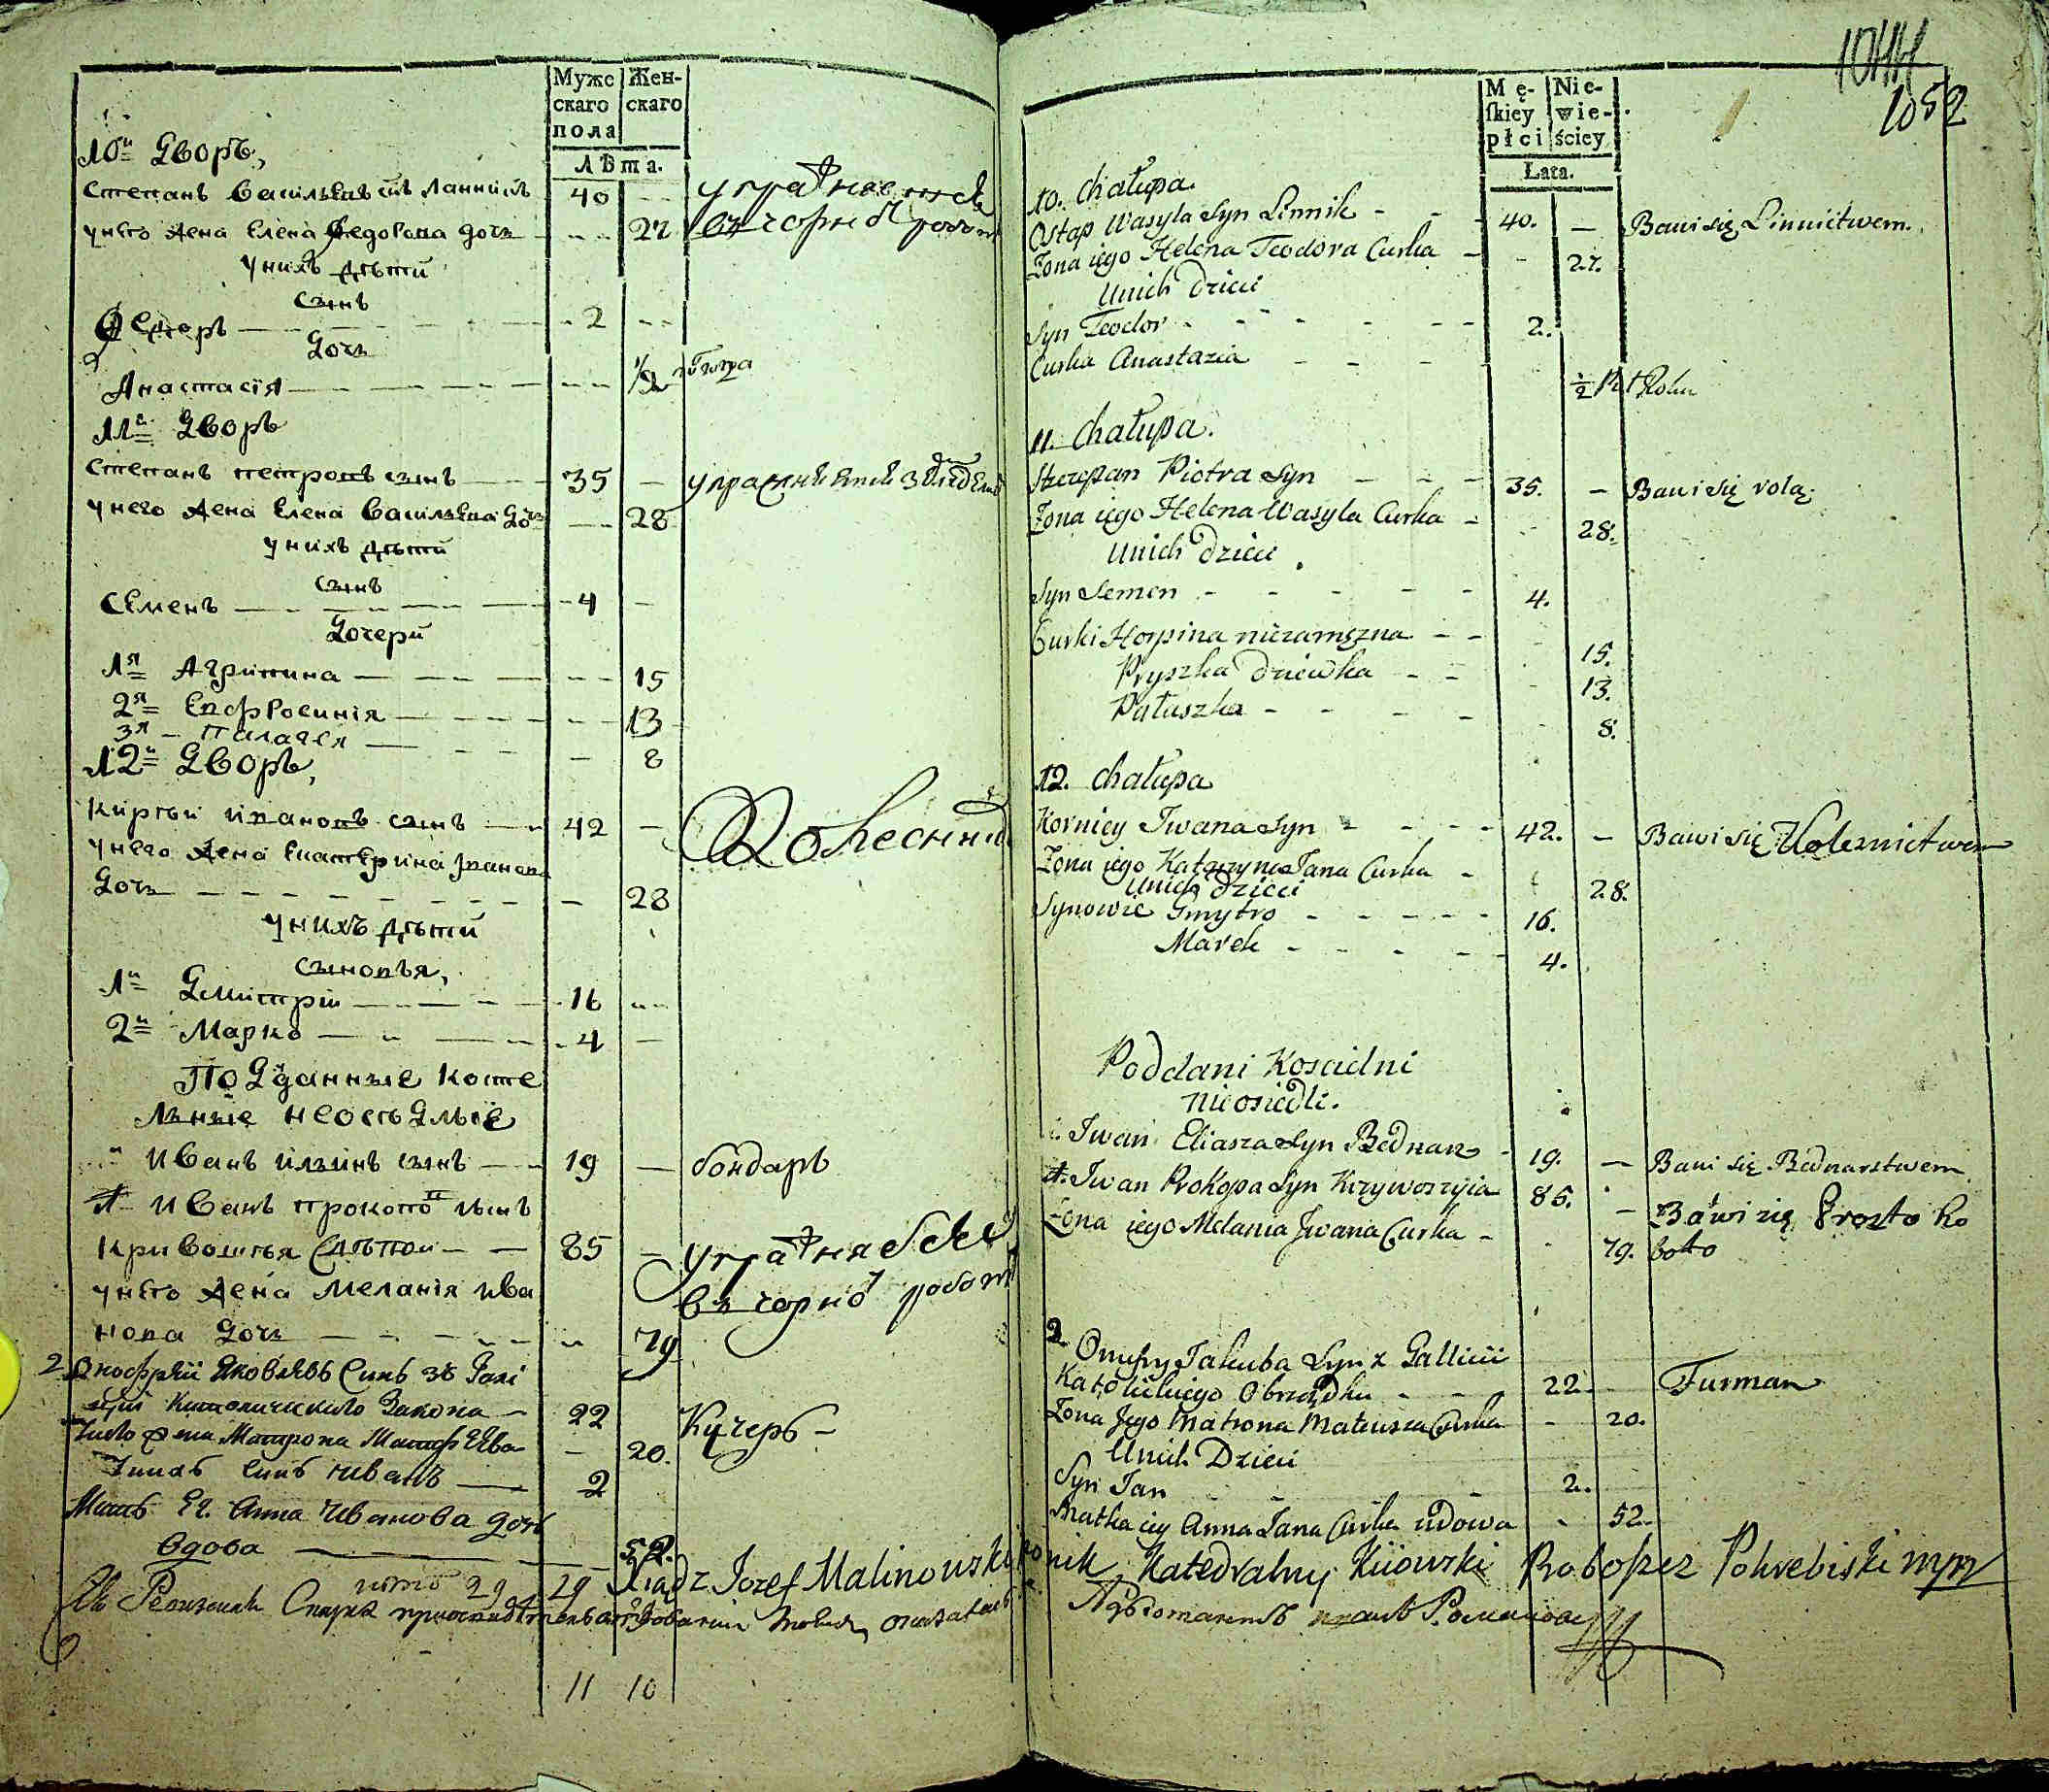 Муже Жен-
скаго скаго
пола
Лѣта.
10й Дворъ,
Степанъ Васильевъ сынъ Линникъ 40
у него жена Елена Федорова дочь 27
у нихъ дѣти
сынъ
Федоръ 2
дочь
Анастасія 1/2 года
11й Дворъ
Степанъ Петровъ сынъ 35
у него жена Елена Васильева дочь 28
у нихъ дѣти
сынъ
Семенъ 4
дочери
1я Агрипина 15
2я Евфросинія 13
3я Палагея 8
12й Дворъ,
Кирѣй Ивановъ сынъ 42 Колесникъ
у него жена Екатерина Иванова
дочь 28
у нихъ дѣти
сыновья,
1й Дмитрій 16
2й Марко 4
Подданные косте
льные неосѣдлые
Иванъ Ильинъ сынъ 19 бондарь
Иванъ Прокоповъ сынъ
Кривошея слѣпой 85 упражняется
у него жена Меланія Ива въ чорной работѣ
нова дочь 79
2. Онофрій Яковлевъ синъ зъ Галі
ціи Католическаго Закона 22 Кучеръ
у него жена Матрона Матфѣева 20.
у нихъ синъ Иванъ 2
Мать Ея Анна Иванова дочь
вдова 52.
итого 29 29
11 10
1044
1052
Mę- Nie-
ſkiey wie-
płci ściey
Łata.
10. Chałupa.
Ostap Wasyla Syn Linnik 40. Bawi się Linnictwem.
Zona iego Helena Teodora Curka 27.
U nich dzieci
Syn Teodor 2.
Curka Anastazia 1/2 Roku
11. Chałupa.
Szczepan Piotra Syn 35. Bawi się rolą.
Zona iego Helena Wasyla Curka 28.
U nich dzieci
Syn Semen 4.
Curki Horpina niezamęzna 15.
Pryszka dziewka 13.
Pałaszka 8.
12. Chałupa
Korniey Iwana Syn 42. Bawi się Kolesnictwem
Zona iego Katarzyna Jana Curka 28.
U nich dzieci
Synowie Dmytro 16.
Marek 4.
Poddani Koscielni
nieosiedli.
Iwan Eliasza Syn Bednarz 19. Bawi się Bednarstwem
Iwan Prokopa Syn Krzywoszyia 85. Bawi się Prosto Ro
Zona iego Melania Iwana Curka 79. boto
2. Onufry Jakuba Syn z Gallicii
Katolickiego Obrządku 22. Furman
Zona Jego Matrona Mateusza Curka 20.
U nich Dzieci
Syn Jan 2.
Matka iey Anna Jana Curka udowa 52.
Xiądz Jozef Malinowski Kanonik Katedralny Kiiowski Proboszcz Pohrebiski mpp